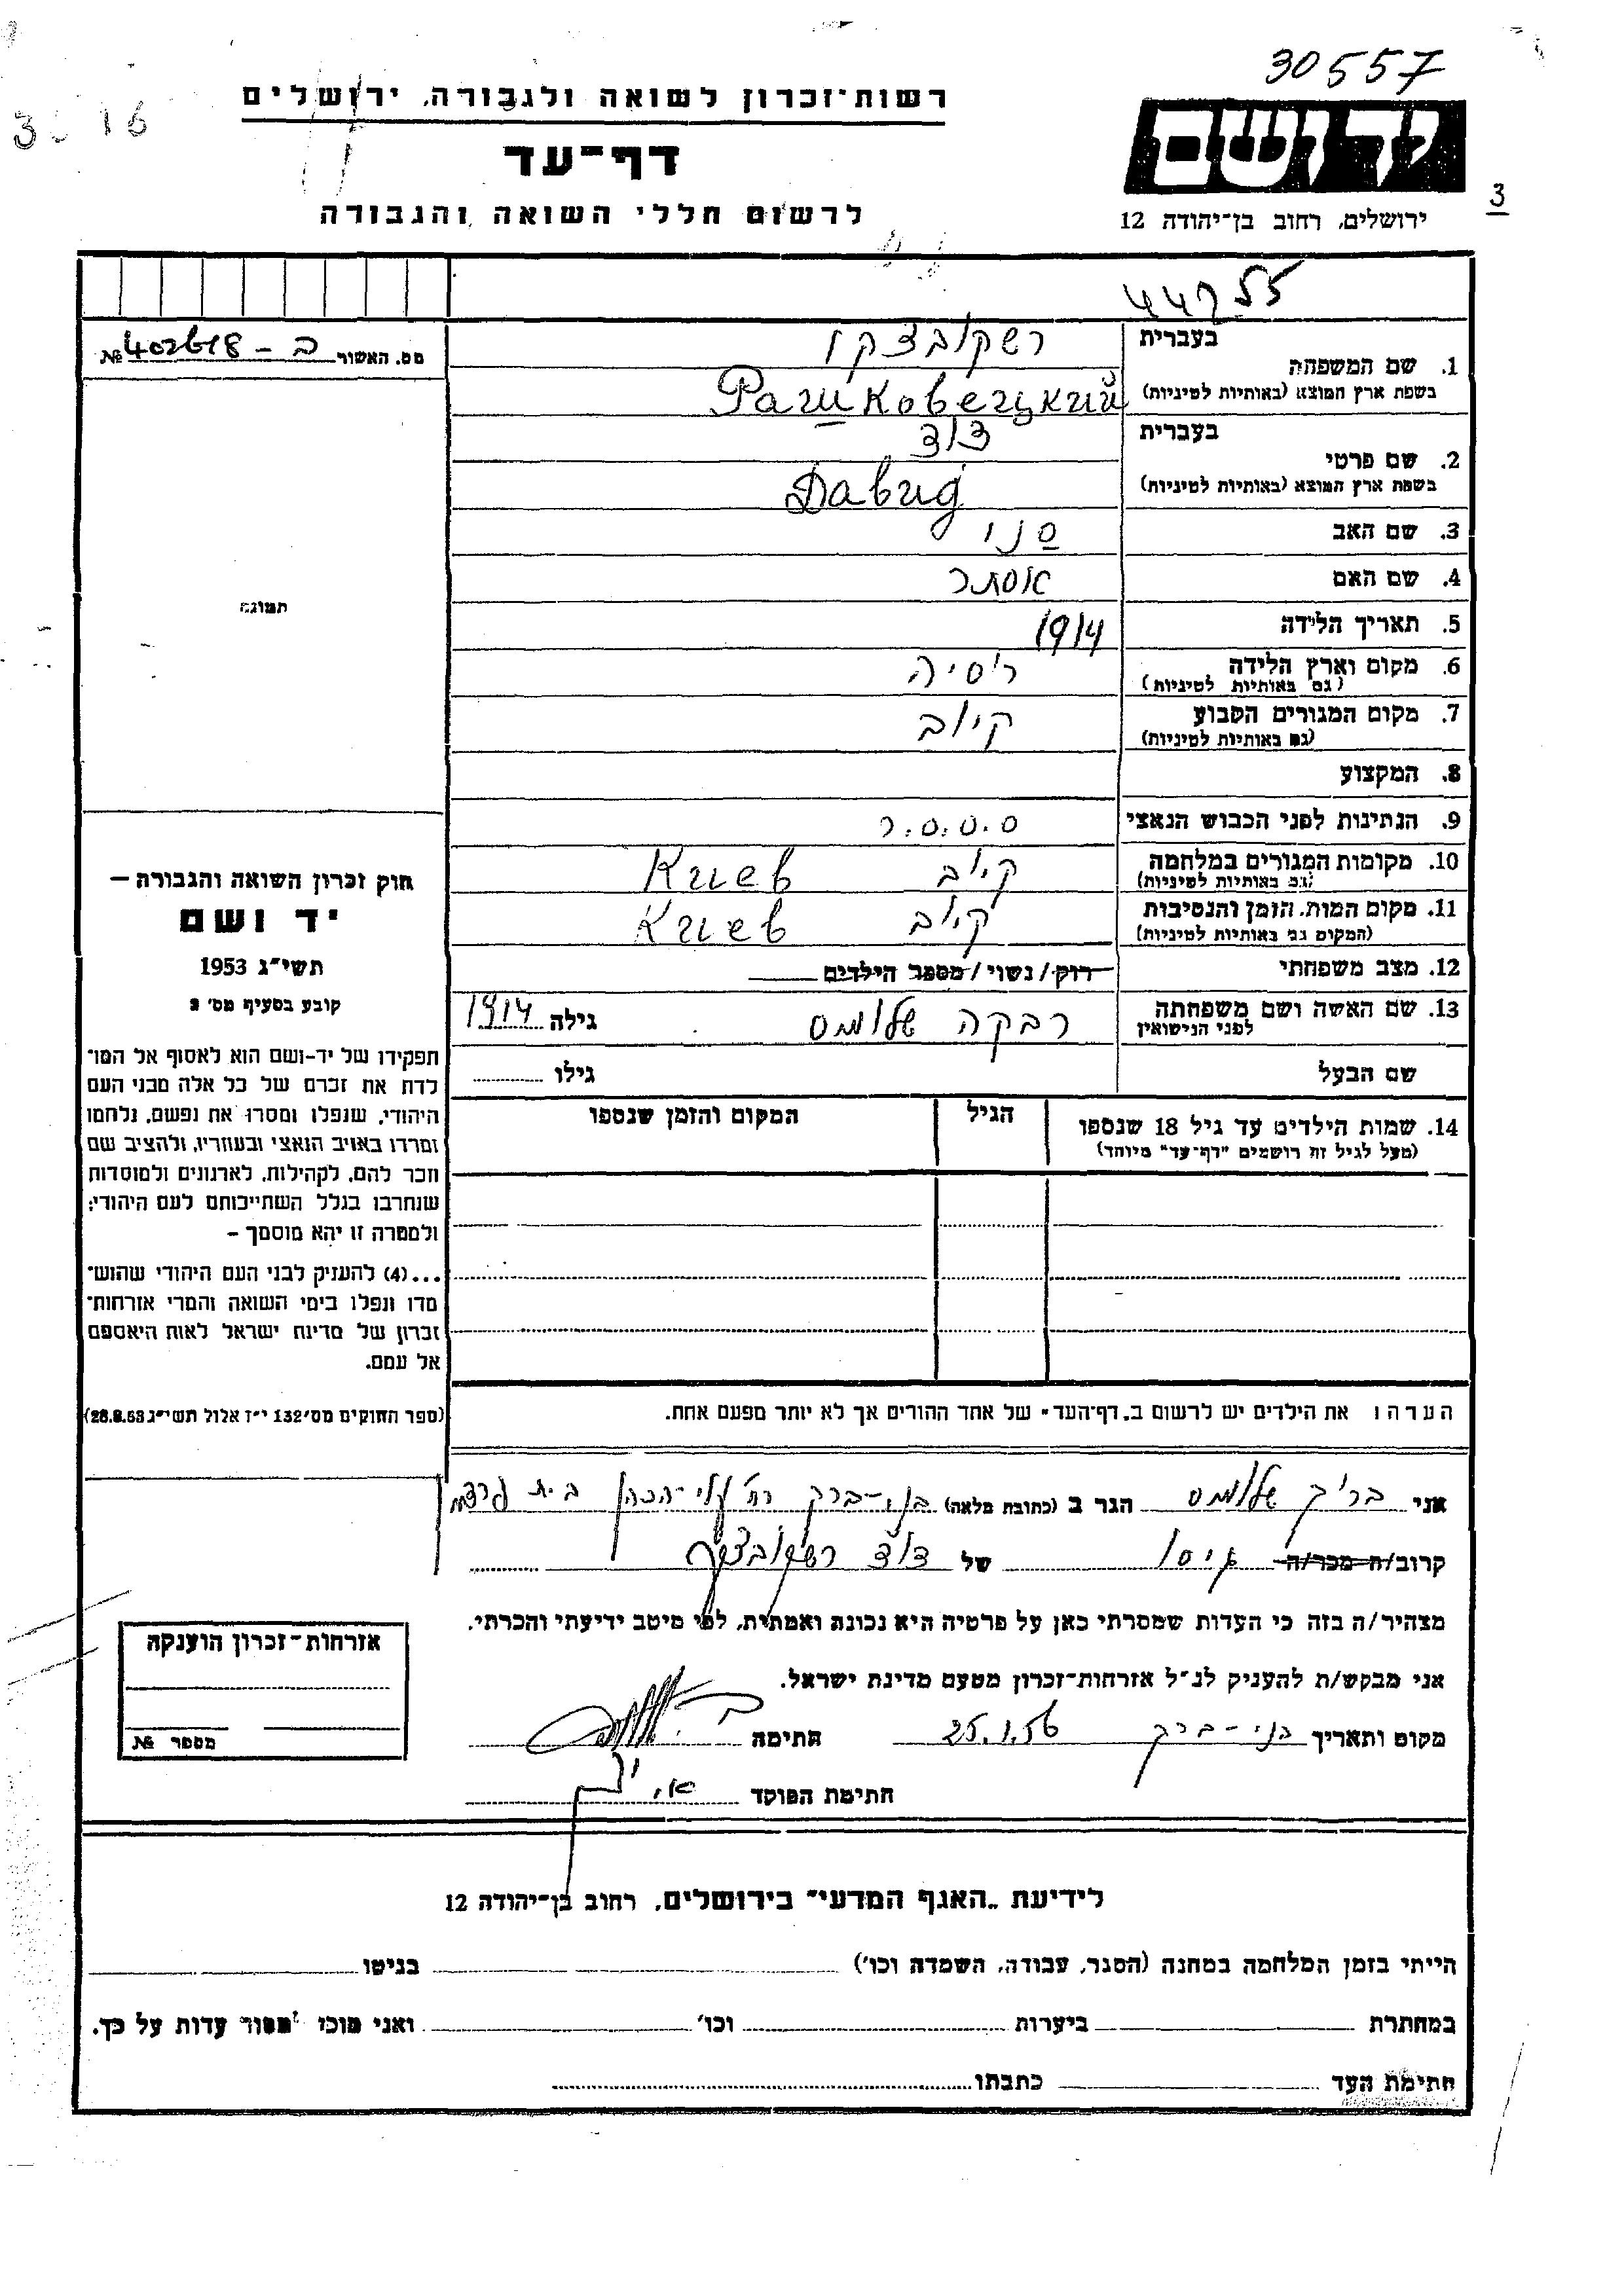 30557
רשות־זכרון לשואה ולגבורה, ירושלים
דף־עד
לרשום חללי השואה והגבורה
יד ושם
ירושלים, רחוב בן־יהודה 12
3
מס. האשור ב – 402618 №
תמונה
בעברית רשקובצקי
1. שם המשפחה
בשפת ארץ המוצא (באותיות לטיניות) Рашковецкий
בעברית דוד
2. שם פרטי
בשפת ארץ המוצא (באותיות לטיניות) Давид
3. שם האב סנו
4. שם האם אסתר
5. תאריך הלידה 1914
6. מקום וארץ הלידה רוסיה
(גם באותיות לטיניות)
7. מקום המגורים הקבוע קיוב
(גם באותיות לטיניות)
8. המקצוע
9. הנתינות לפני הכבוש הנאצי ס.ס.ס.ר
10. מקומות המגורים במלחמה קיוב Киев
(גם באותיות לטיניות)
11. מקום המות, הזמן והנסיבות קיוב Киев
(המקום גם באותיות לטיניות)
12. מצב משפחתי רוק/נשוי/מספר הילדים
13. שם האשה ושם משפחתה רבקה גילה 1914
לפני הנישואין
שם הבעל גילו
14. שמות הילדים עד גיל 18 שנספו הגיל המקום והזמן שנספו
(מעל לגיל זה רושמים "דף־עד" מיוחד)
הערה: את הילדים יש לרשום ב„דף־העד" של אחד ההורים אך לא יותר מפעם אחת.
חוק זכרון השואה והגבורה —
יד ושם
תשי"ג 1953
קובע בסעיף מס' 2
תפקידו של יד-ושם הוא לאסוף אל המו־
לדת את זכרם של כל אלה מבני העם
היהודי, שנפלו ומסרו את נפשם, נלחמו
ומרדו באויב הנאצי ובעוזריו, ולהציב שם
וזכר להם, לקהילות, לארגונים ולמוסדות
שנחרבו בגלל השתייכותם לעם היהודי;
ולמטרה זו יהא מוסמך –
...(4) להעניק לבני העם היהודי שהוש־
מדו ונפלו בימי השואה והמרי אזרחות־
זכרון של מדינת ישראל לאות היאספם
אל עמם.
(ספר החוקים מס' 132 י"ז אלול תשי"ג 28.8.53)
אני הגר ב (כתובת מלאה) בני-ברק רח'
קרוב/ה מכר/ה גיסו של דוד רשקובצקי
מצהיר/ה בזה כי העדות שמסרתי כאן על פרטיה היא נכונה ואמתית, לפי מיטב ידיעתי והכרתי.
אני מבקש/ת להעניק לנ"ל אזרחות־זכרון מטעם מדינת ישראל.
מקום ותאריך בני-ברק 25.1.56 חתימה
חתימת הפוקד
אזרחות־זכרון הוענקה
מספר №
לידיעת „האגף המדעי" בירושלים, רחוב בן־יהודה 12
הייתי בזמן המלחמה במחנה (הסגר, עבודה, השמדה וכו') בגיטו
במחתרת ביערות וכו' ואני מוכן למסור עדות על כך.
חתימת העד כתבתו